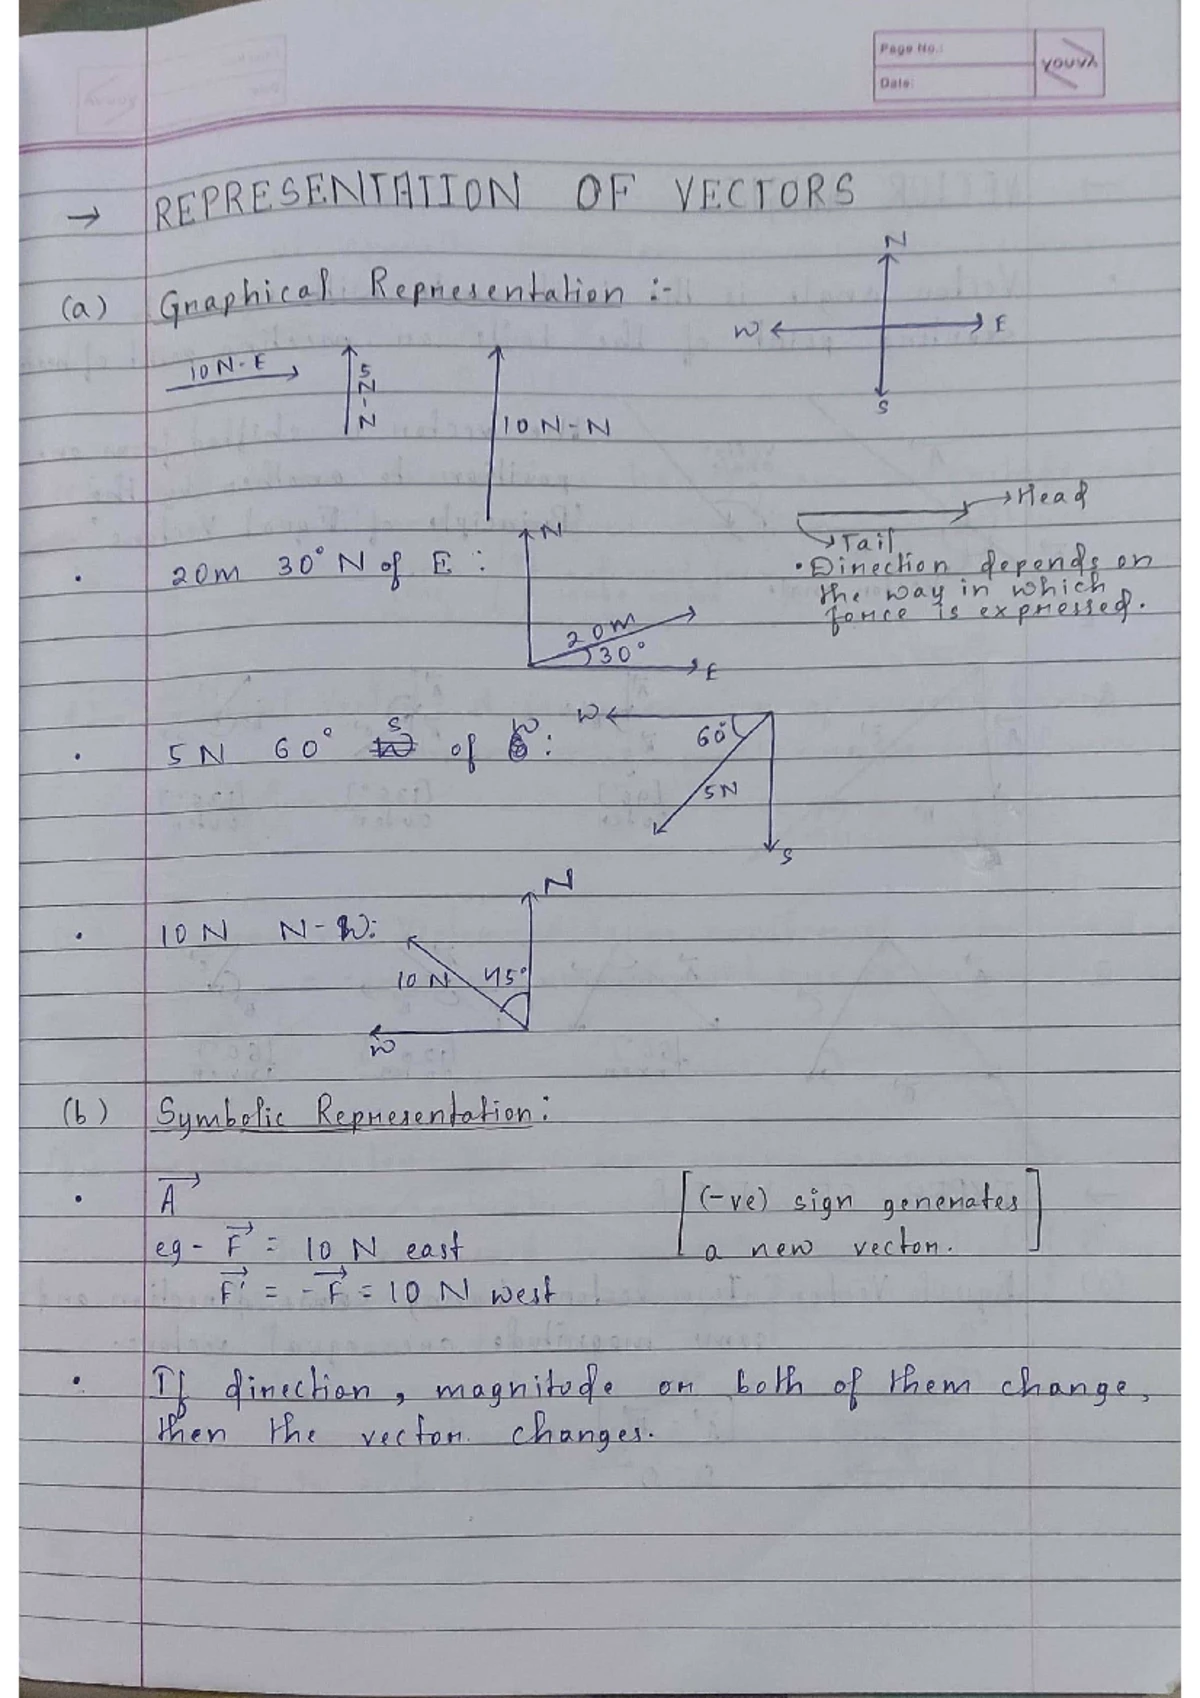 Page No.:
Date:
youva
→ REPRESENTATION OF VECTORS
(a) Graphical Representation :-
N
W E
S
10 N-E
5N-N
10 N-N
→ Head
→ Tail
• Direction depends on
the way in which
force is expressed.
• 20m 30° N of E :
N
20m
30°
E
• 5N 60° S of W :
W
60°
5N
S
• 10 N N-W:
N
10 N 45°
W
(b) Symbolic Representation :
• A⃗
eg - F⃗ = 10 N east
F⃗' = -F⃗ = 10 N west
[(-ve) sign generates
a new vector.]
• If direction, magnitude or both of them change,
then the vector changes.